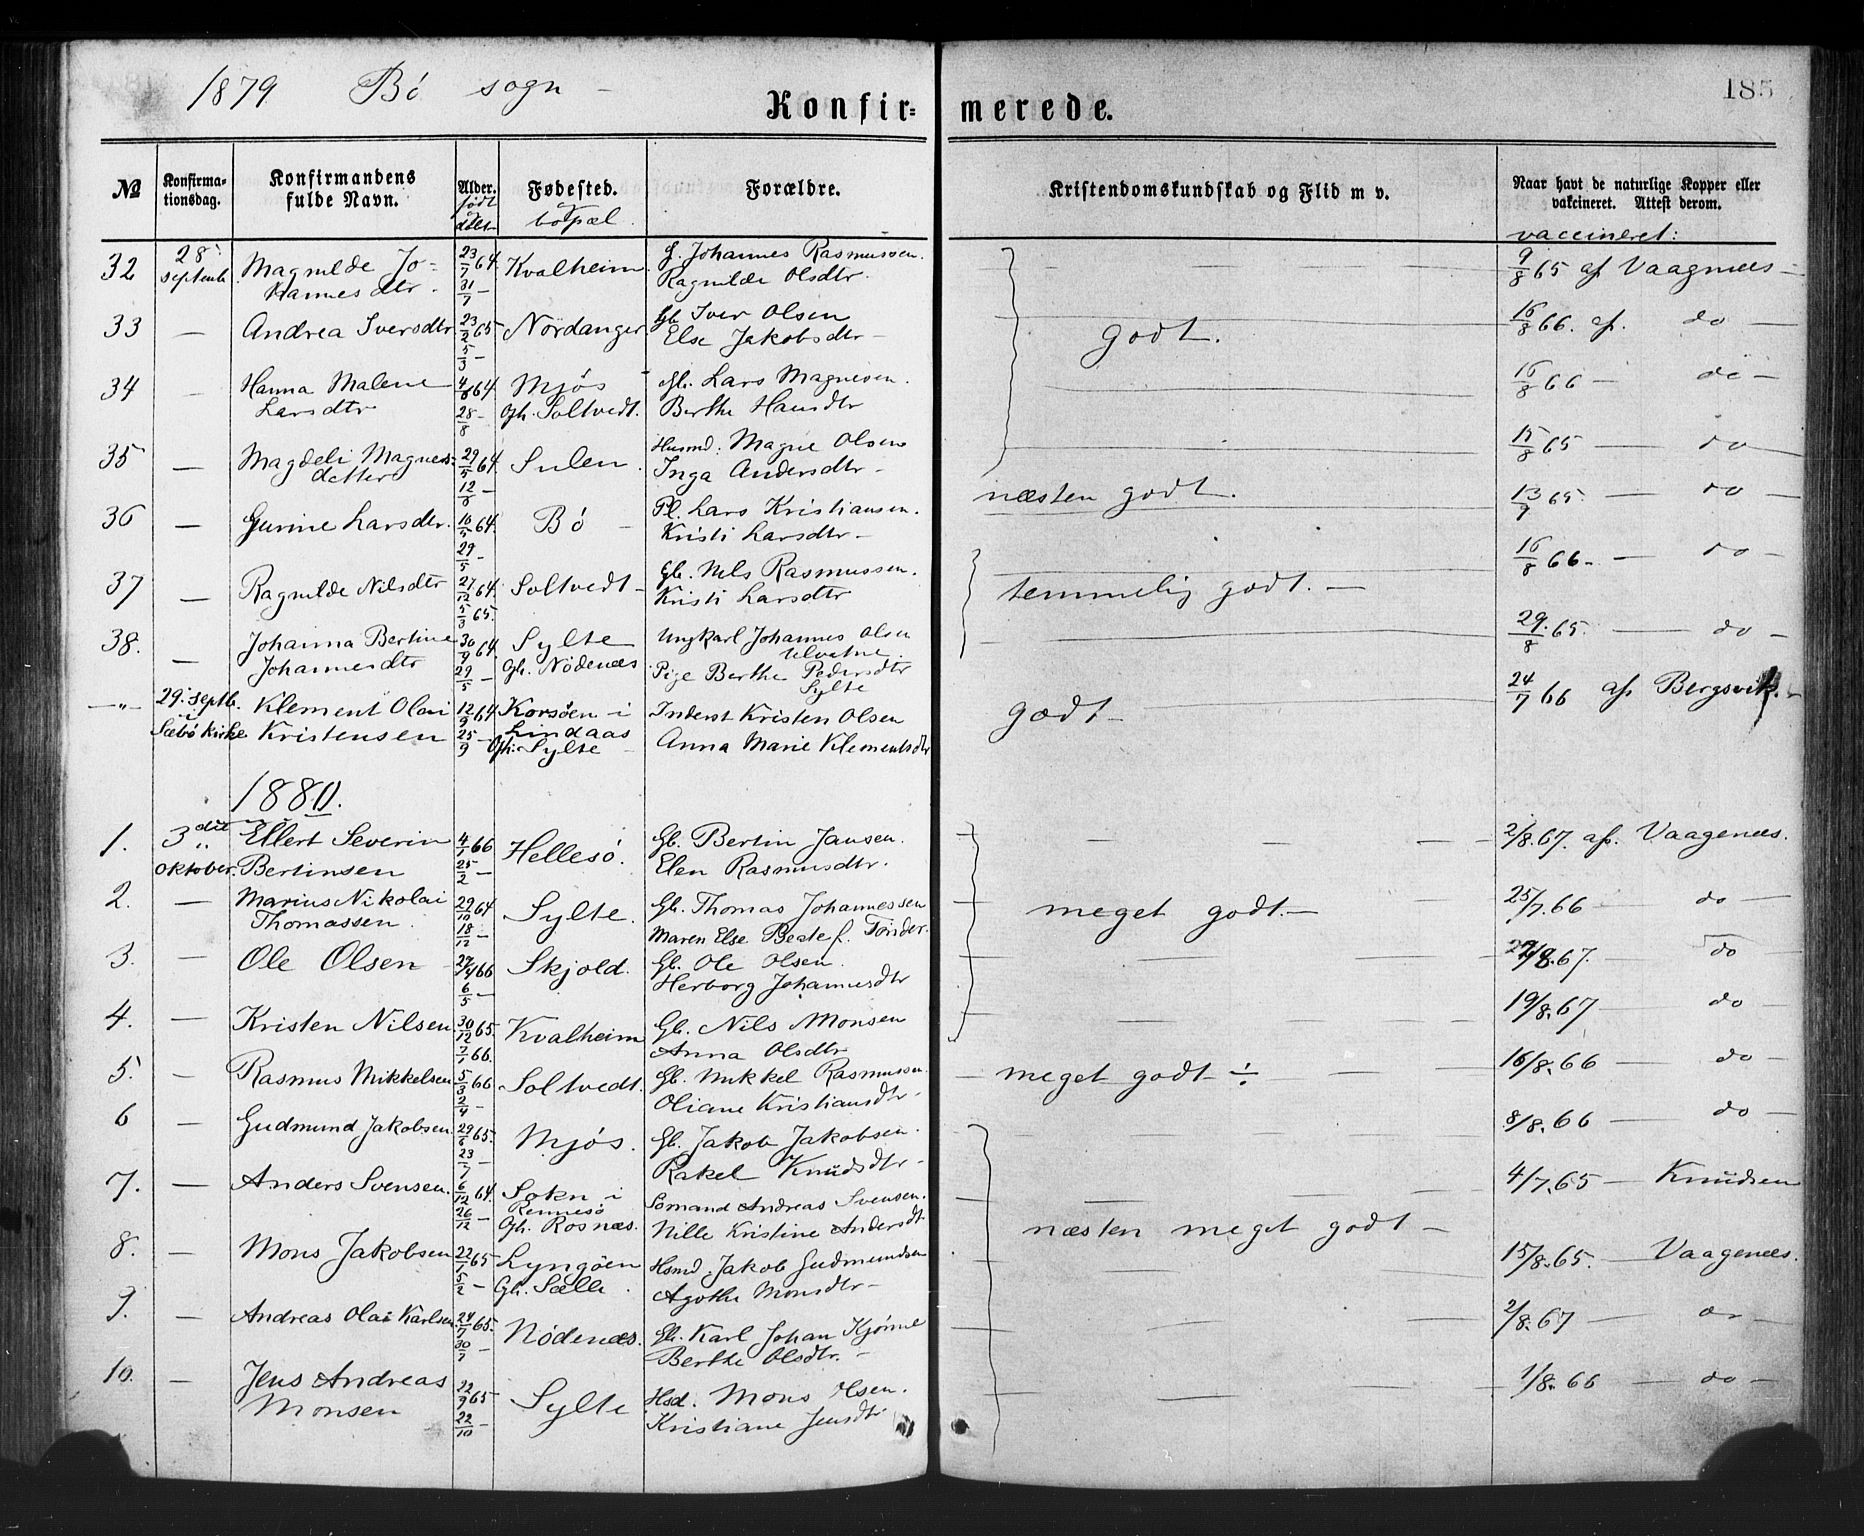 1879 Bö sogn -
Konfir=merede.
185
№ Konfirma-tionsdag. Konfirmandens fulde Navn. Alder. født & døbt Fødested. & bopæl Forældre. Kristendomskundskab og Flid m v. Naar havt de naturlige Kopper eller vakcineret. Attest derom.
vaccineret:
32 28. septemb. Magnilde Jo= 23/7 64. Kvalheim. G. Johannes Rasmussen. 9/8 65 af Vaagenæs -
hannesdtr. 31/7 - Ragnilde Olsdtr.
33 — Andrea Iversdtr 23/2 65 Nordanger Gb. Iver Olsen godt. 16/8 66. af. do —
5/3 - Else Jakobsdtr -
34 - Hanna Malene 4/8 64. Mjös - Gb. Lars Magnesen. 16/8 66 - do -
Larsdtr 28/8 - Oph. Soltvedt. Berthe Hansdtr
35 — Magdeli Magnes= 29/5 64. Sulen. Husmd. Magne Olsen 15/8 65 — do —
datter 12/6 - Inga Andersdtr -
36 — Gurine Larsdtr. 16/5 64. Bö - Pl. Lars Kristiansen. næsten godt. 13/9 65. — do -
29/5 - Kristi Larsdtr -
37 — Ragnilde Nilsdtr 27/12 64. Soltvedt - Gb. Nels Rasmussen. temmelig godt. — 16/8 66. - do -
5/3 65. Kristi Larsdtr
38. — Johanna Bertine 30/4 64. Sylte Ungkarl Johannes Olsen 29/8 65. — do -
Johannesdtr 29/5 - Oph. Nödenæs Ulvatne.
Pige Berthe Pedersdtr
Sylte
—"— 29. septb. Klement Olai 12/9 64 Korsöen i Inderst Kristen Olsen godt - 24/7 66 af Bergsvik. -
i Lindaas
Sæbö Kirke Kristensen 25/9 - Oph. Sylte - Anna Marie Klementsdtr
1880.
1. 3die Ellert Severin 4/1 66 Hellesö. Gb. Bertin Jansen. 2/8. 67. af. Vaagenæs.
oktober. Bertinsen 25/2 - Elen Rasmusdtr.
2. — Marius Nikolai 29/10 64 Sylte. Gb. Thomas Johannessen meget godt. — 25/7. 66 - do —
Thomassen. 18/12 - Maren Else Beate f. Tönder.
3. — Ole Olsen 27/4 66 Skjold. Gb. Ole Olsen. 8. 67. — do
6/5 - Herborg Johannesdtr
4. — Kristen Nilsen 30/12 65. Kvalheim Gb. Nils Monsen 19/8. 67 — do -
7/1 66. Anna Olsdtr
5. — Rasmus Mikkelsen 5/3 66 Soltvedt. Gb. Mikkel Rasmussen. — meget godt ÷ 16/8. 66 — do -
2/4 - Oliane Kristiansdtr -
6 — Gudmund Jakobsen. 29/6 65. Mjös. Gb. Jakob Jakobsen. 8/8. 66 — do -
23/7 - Rakel Knudsdtr -
7. — Anders Svensen. 6/12 64. Sokn i Sömand Andreas Svensen. 4/7. 65 — Knudsen
Rennesö
26/12 - Oph. Rosnæs. Nille Kristine Andersdt næsten meget godt -
8. — Mons Jakobsen 22/1 65 Lyngöen Hsmd. Jakob Gudmundsen 15/8. 65. — Vaagenæs.
5/2 - Oph. Sælle. Agothe Monsdtr -
9. — Andreas Olai Karlsen. 24/7 65. Nödenæs. Gb. Karl Johan Kjönne 2/8. 67 —
30/7 - Berthe Olsdtr. -
10. — Jens Andreas 22/9 65 Sylte Hsd. Mons Olsen. 1/8. 66 — do -
Monsen 22/10 - Kristiane Jensdtr